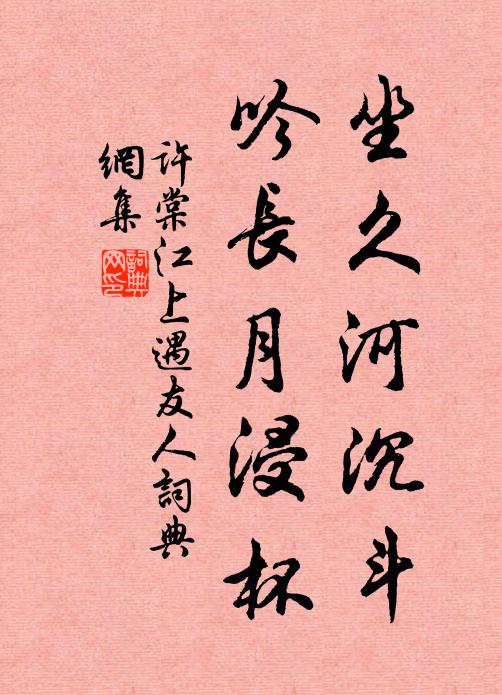 坐久河沉斗
吟長月浸杯
許棠江上遇友人詞典
網集
詞典
网印